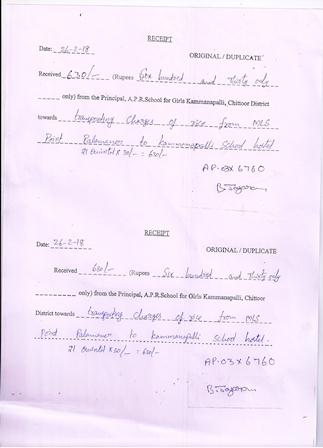 RECEIPT
Date: 26-2-18
ORIGINAL / DUPLICATE
Received 630/- (Rupees Six hundred and Thirty only
only) from the Principal, A.P.R.School for Girls Kammanapalli, Chittoor District
towards transporting charges of rice from MLS
Point Palamaner to Kammanapalli School hostel
21 Quintal X 30/- = 630/-
AP-03X 6760
RECEIPT
Date: 26-2-18
ORIGINAL / DUPLICATE
Received 630/- (Rupees Six hundred and Thirty only
only) from the Principal, A.P.R.School for Girls Kammanapalli, Chittoor
District towards transporting charges of rice from MLS
Point Palamaner to Kammanapalli school hostel.
21 Quintal X 30/- = 630/-
AP-03 X 6760